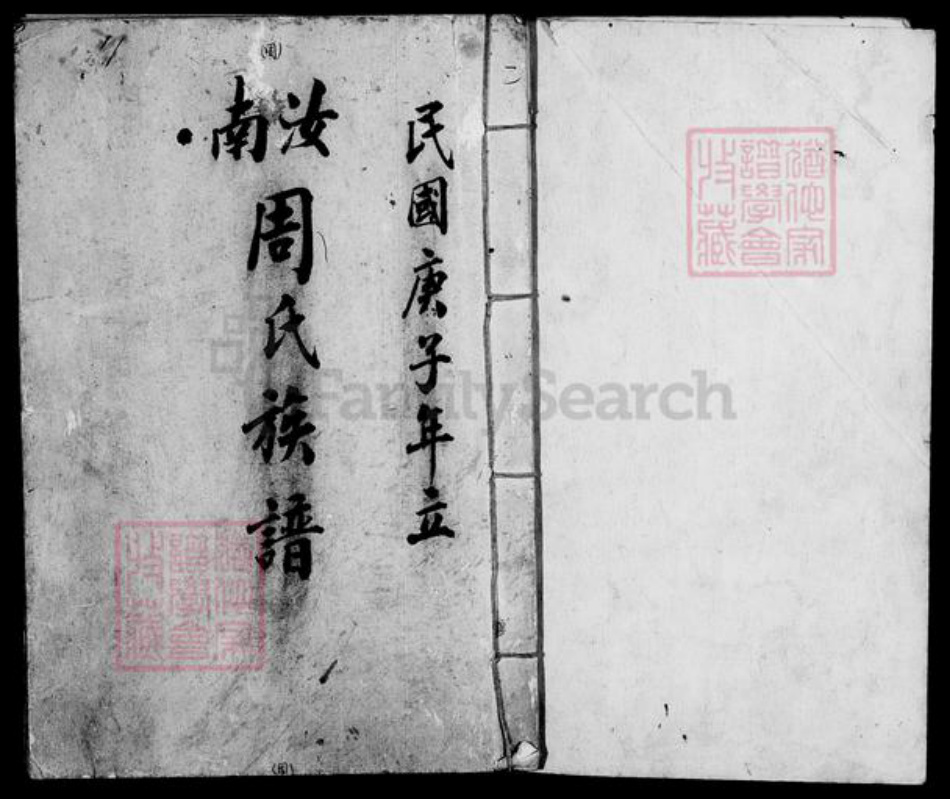 民國庚子年立
汝南
周氏族譜
(周)
(周)
猶他家
譜學會
收藏
猶他家
譜學會
收藏
FamilySearch